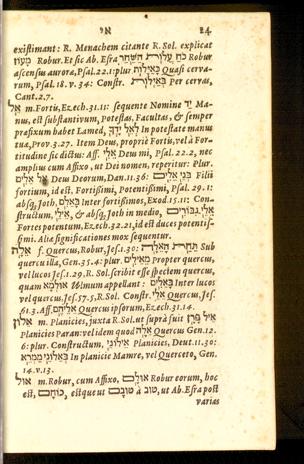 אי 24
existimant: R. Menachem citante R. Sol. explicat
Robur. Et sic Ab. Esra כח עלות השחר Robur
ascensus aurora, Psal.22.1: plur Quasi cerva-
rum, Psal. 18. v. 34: Constr. Per cervas,
Cant. 2.7.
אל m. Fortis, Ezech. 31. 11: sequente Nomine יד Ma-
nus, est substantivum, Potestas, Facultas, & semper
prefixum habet Lamed, לאל ידך In potestate manus
tua, Prov. 3.27. Item Deus, proprie Fortis, vel à For-
titudine sic dictus: Aff. אלי Deus mi, Psal. 22.2, nec
amplius cum Affixo, ut Dei nomen, repetitur: Plur.
אל אלים Deus Deorum, Dan. 11. 36: בני אלים Filii
fortium, id est, Fortissimi, Potentissimi, Psal. 29. 1:
absq, Joth, באלם Inter fortissimos, Exod. 15. 11: Con-
structum, אילי, & absq, Joth in medio, אלי גבורים
Fortes potentum, Ezech. 32. 21, id est duces potentis-
simi. Alia significationes mox sequentur.
אלה f. Quercus, Robur, Jes. 1. 30: תחת האלה Sub
quercu illa, Gen. 35. 4: plur. מאילים Propter quercus,
vel lucos Jes. 1. 29. R. Sol. scribit esse speciem quercus,
quam אולמא Ulmum appellant: באלים Inter lucos
vel quercus, Jes. 57. 5, R. Sol. Constr. אילי Quercus, Jes.
61. 3. Aff. אליהם Quercus ipsorum, Ezech. 31. 14.
אלון m. Planicies, juxta R. Sol. ut suprà fuit איל פארן
Planicies Paran: vel idem quod אלה Quercus Gen. 12.
6: plur. Constructum, אלוני Planicies, Deut. 11. 30:
באלוני ממרא In planicie Mamre, vel Querceto, Gen.
14. v. 13.
אול m. Robur, cum Affixo, אולם Robur eorum, hoc
est, כוחם, estque ut טוב à טובם, ut Ab. Esra post
varias